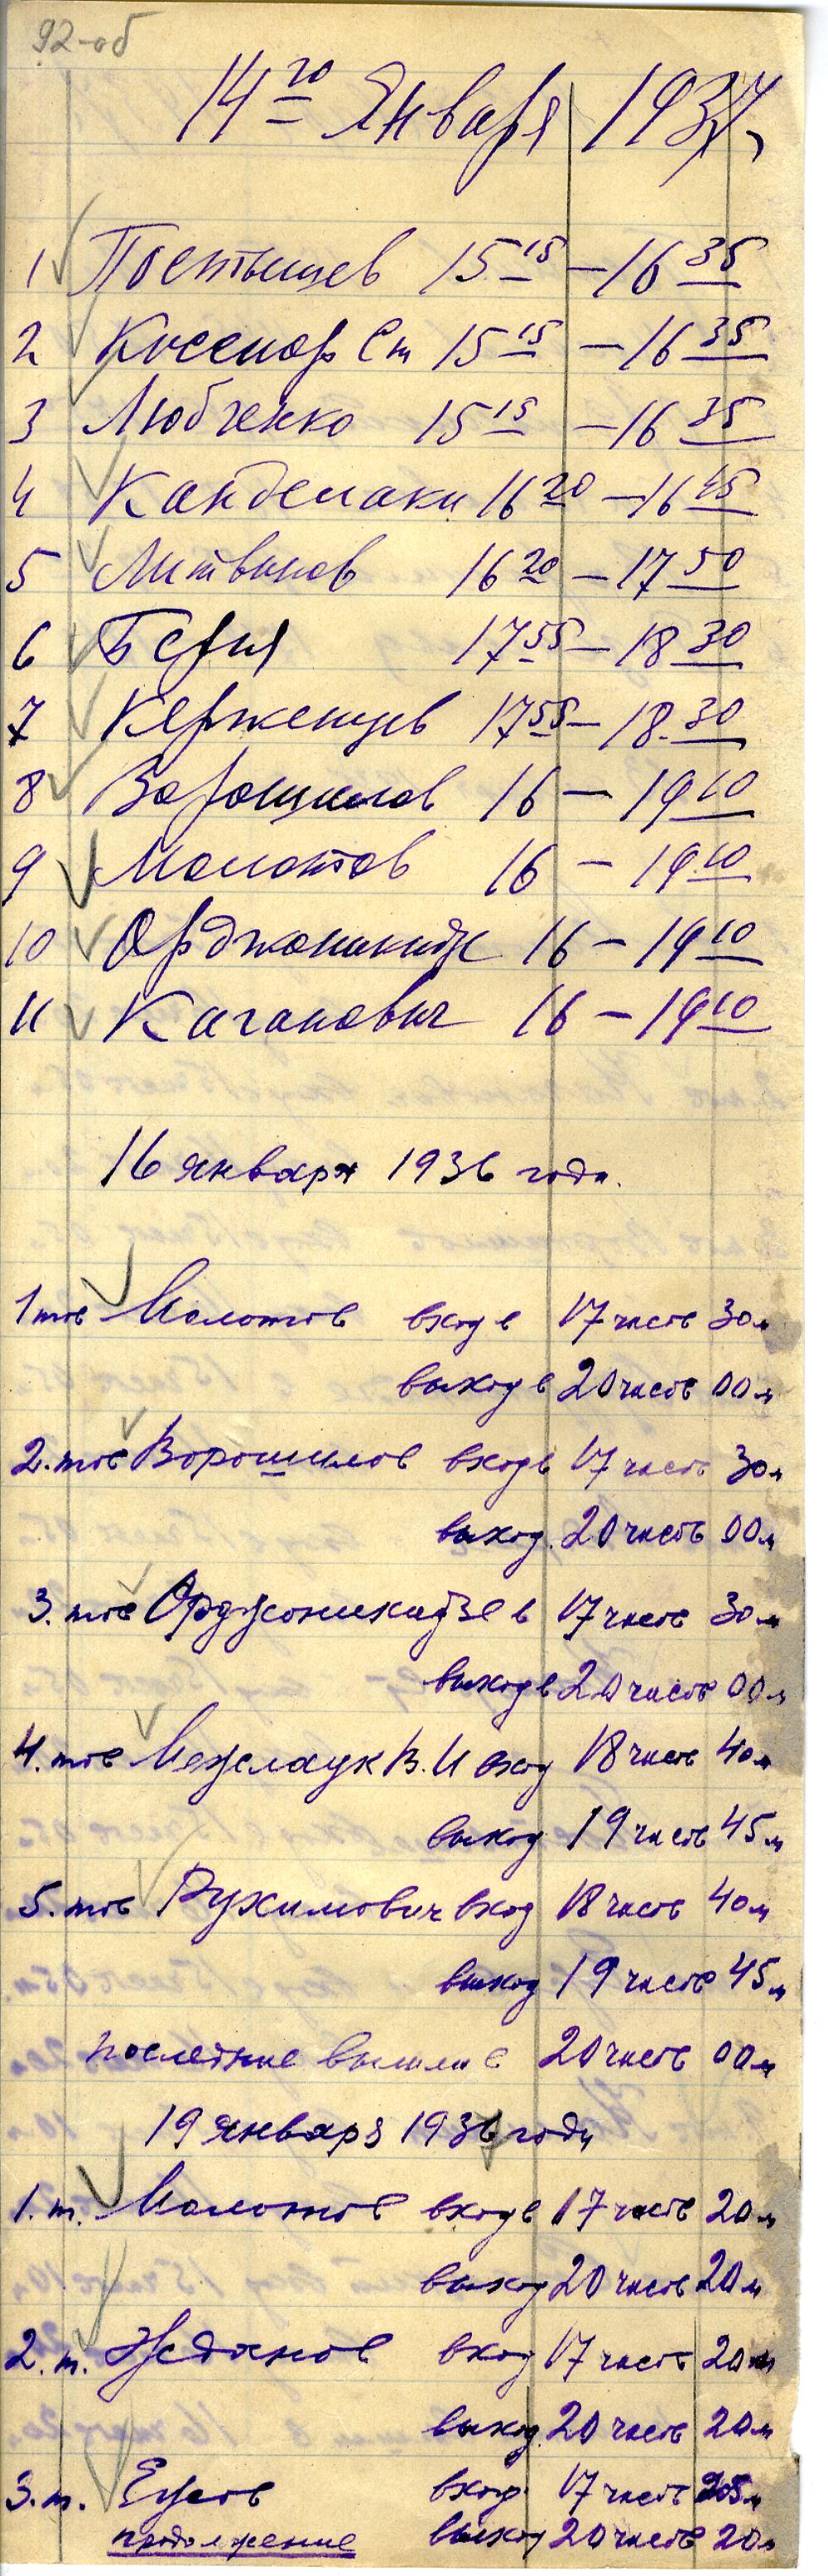 92-об
14го Января 1937г.
1 Постышев 15 15 – 16 35
2 Коссиор Ст 15 15 – 16 35
3 Любченко 15 15 – 16 35
4 Канделаки 16 20 – 16 45
5 Литвинов 16 20 – 17 50
6 Берия 17 55 – 18 30
7 Керженцев 17 55 – 18.30
8 Ворошилов 16 – 19 10
9 Молотов 16 – 19 10
10 Орджоникидзе 16 – 19 10
11 Каганович 16 – 19 10
16 января 1936 года.
1 тов Молотов вход в 17 часов 30 м
выход в 20 часов 00 м
2. тов Ворошилов вход в 17 часов 30 м
выход. 20 часов 00 м
3. тов Орджоникидзе в 17 часов 30 м
выход в 20 часов 00 м
4. тов Межлаук В. И вход 18 часов 40 м
выход 19 часов 45 м
5. тов Рухимович вход 18 часов 40 м
выход 19 часов 45 м
последние вышли в 20 часов 00 м
19 января 1936 года
1. т. Молотов вход в 17 часов 20 м
выход 20 часов 20 м
2. т. Жданов вход 17 часов 20 м
выход 20 часов 20 м
3. т. Ежов вход 17 часов
продолжение выход 20 часов 20 м